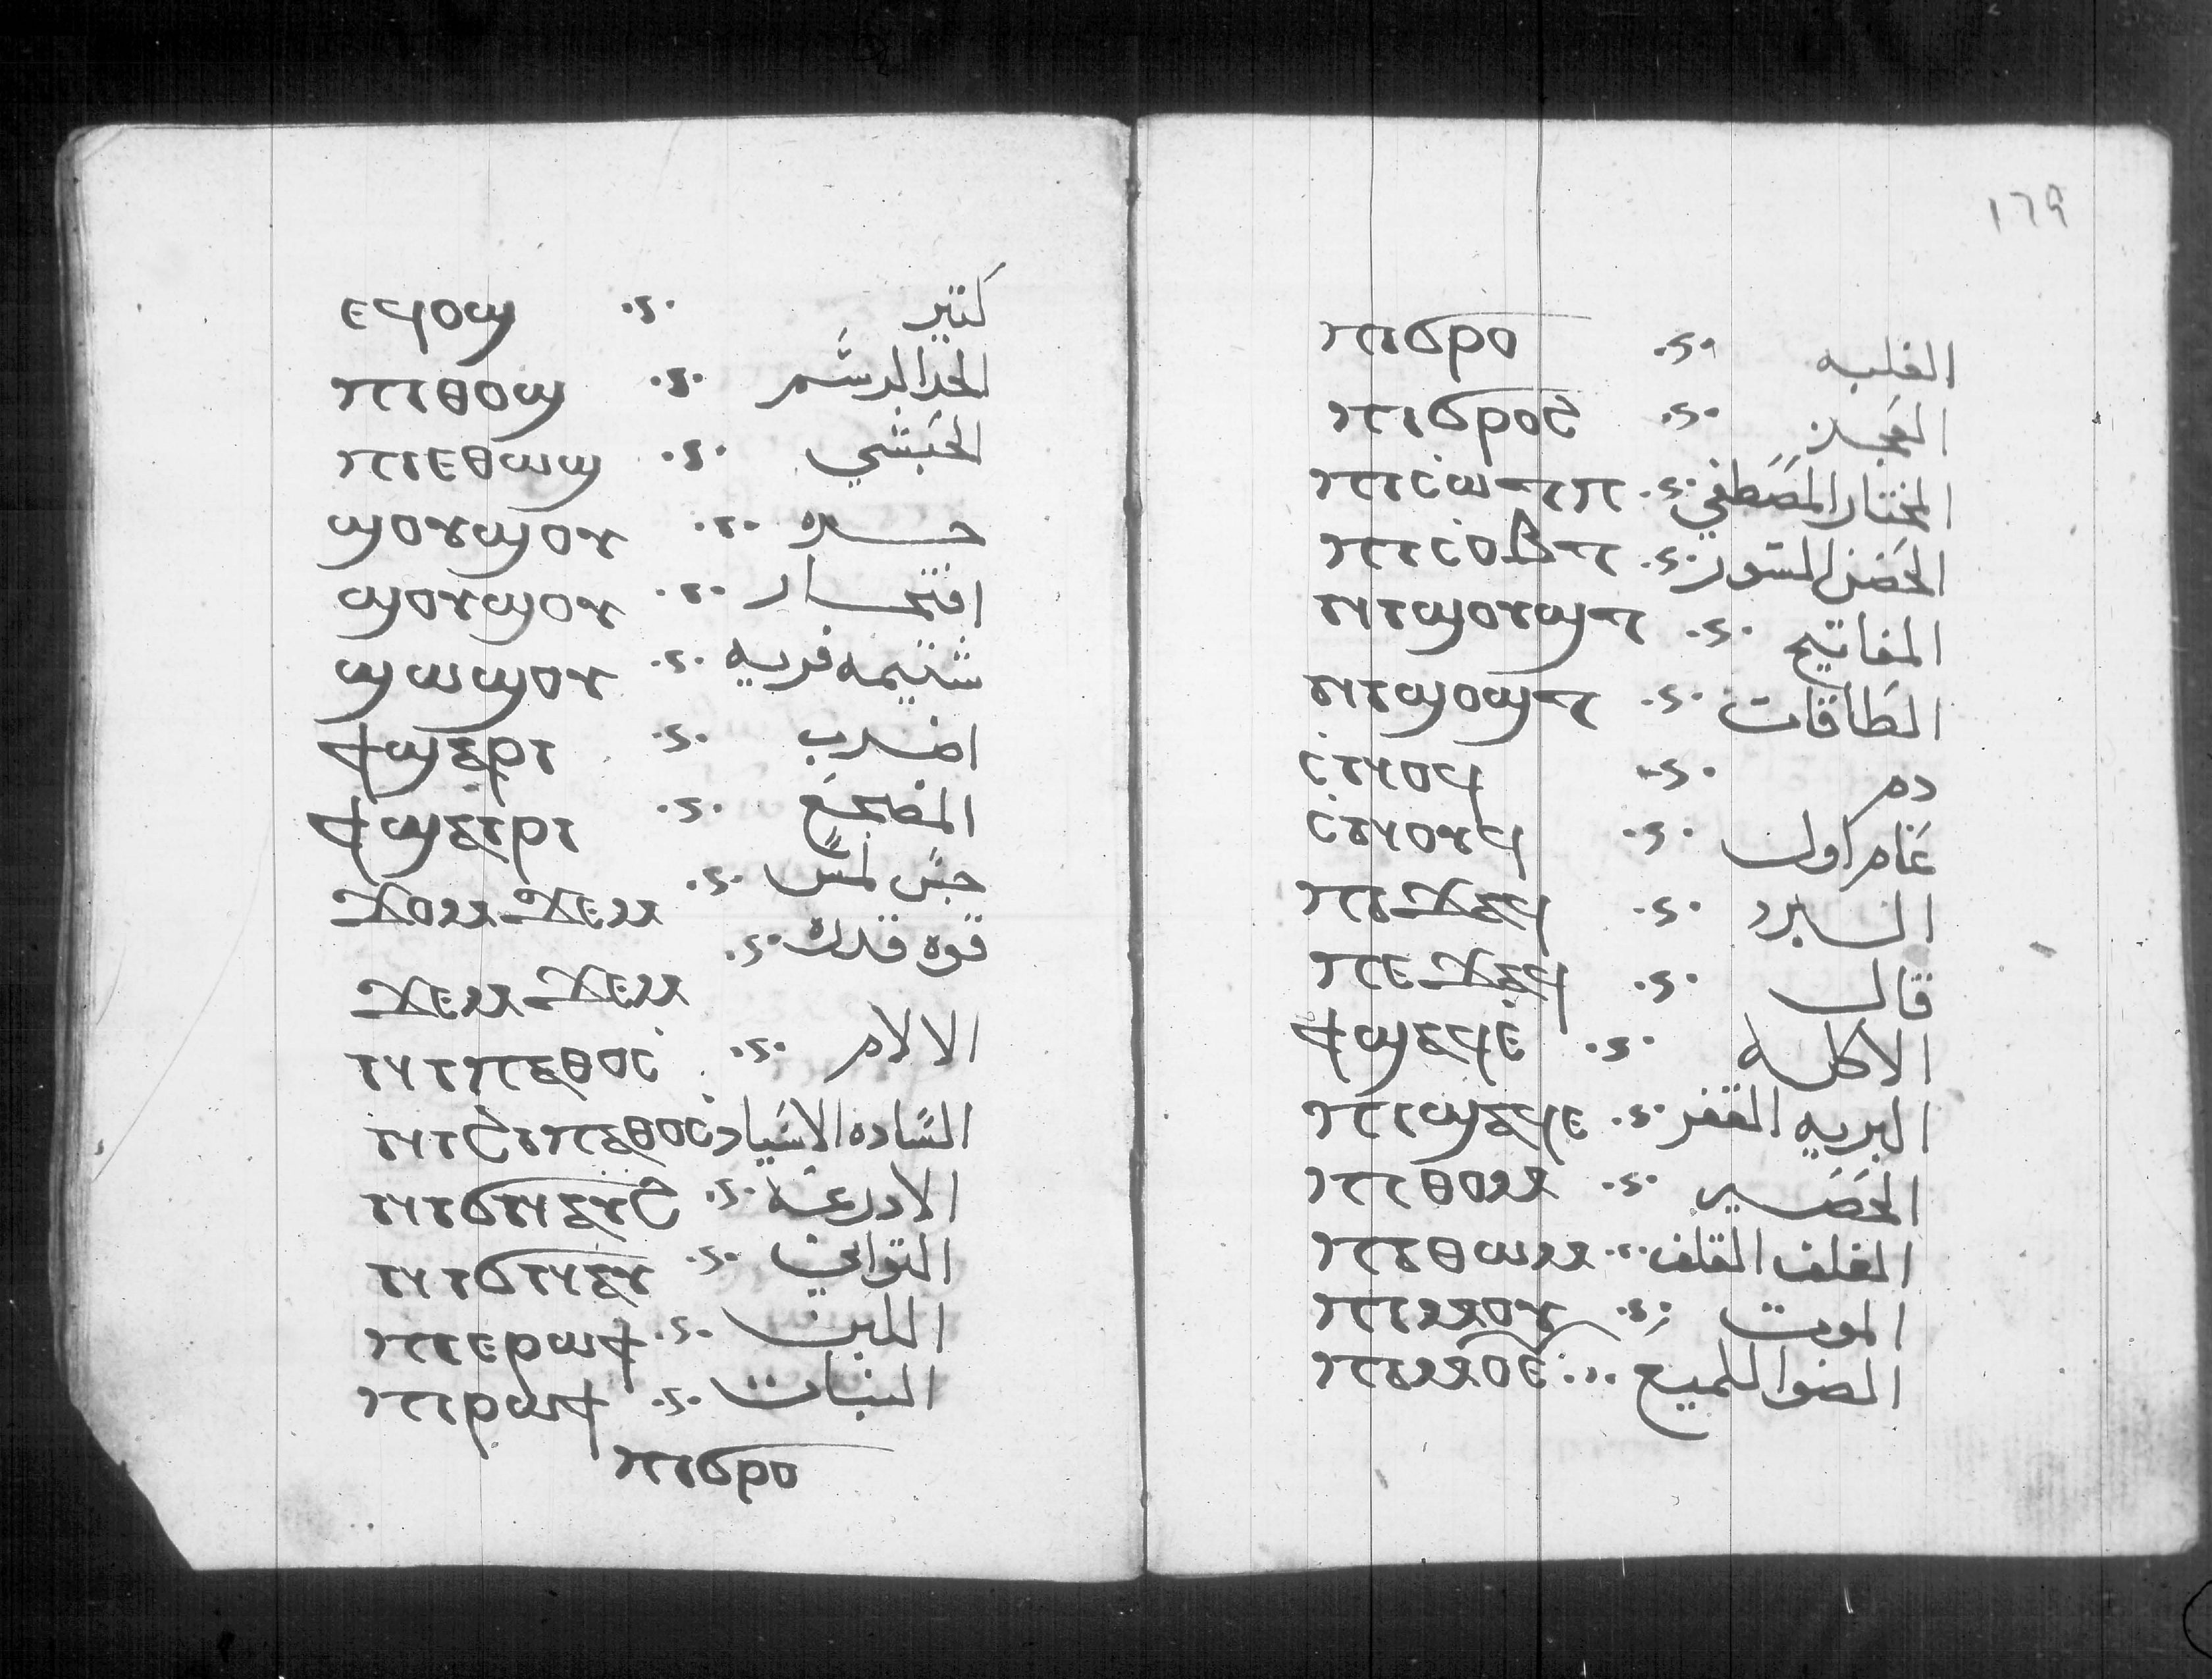 ⲉϥⲟϣ كتير
ⲡⲓⲑⲟϣ الحد الرشم
ⲡⲓⲉⲑⲱϣ الحبشي
ϣⲟⲩϣⲟⲩ
ϣⲟⲩϣⲟⲩ افتخار
ϣⲱϣⲟⲩ شتيمه فريه
ϯϣⲉⲣⲓ اضرب
ϯϣⲁⲓⲣⲓ المضجع
ϫⲟⲙϫⲉⲙ جس لمس
ϫⲉⲙϫⲉⲙ قوه قدره
ⲛⲓⲡⲁⲑⲟⲥ الالام
ⲛⲓϩⲓⲡⲡⲉⲑⲟⲥ الساده الاسياد
ⲛⲓϭⲛⲁⲩϩ الادرعه
ⲛⲓϭⲛⲁⲩ التواني
ⲡⲓⲉⲣⲱϯ اللبن
ⲡⲓⲣⲱϯ النبات
ⲡⲓϭⲣⲟ
١٦٩
ⲡⲓϭⲣⲟ الغلبه
ⲡⲓϭⲣⲟϩ
ⲡⲓⲥⲱⲧⲡ المختار المصطفي
ⲡⲓⲥⲟⲃⲧ الحصن السور
ⲛⲓϣⲟⲩϣⲧ المفاتيح
ⲛⲓϣⲟϣⲧ الطاقات
ⲥⲛⲟϥ دم
ⲥⲛⲟⲩϥ عام اول
ⲡⲓϫⲁϥ البرد
ⲡⲉϫⲁϥ قال
ϯϣⲁϥⲉ الاكله
ⲡⲓϣⲁϥⲉ البريه القفر
ⲡⲓⲑⲟⲙ الحصير
ⲡⲓⲑⲱⲙ الغلف القلف
ⲡⲓⲙⲟⲩ الموت
ⲡⲓⲙⲟⲉ الضوا اللميع